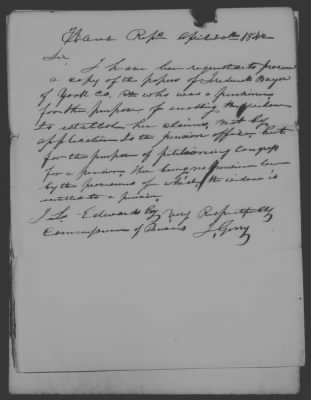 H of Reps April 20th 1842
Sir
I have been requested to procure
a copy of the papers of Frederick Boyer
of York Co. Pa who was a pensioner
for the purpose of enabling the widow
to establish her claims, not by
application to the pension office. but
for the purpose of petitioning Congress
for a pension, there being no pension law
by the provisions of which the widow is
entitled to a pension.
J L. Edwards Esq Very Respectfully
Commissioner of Pensions J. Gerry